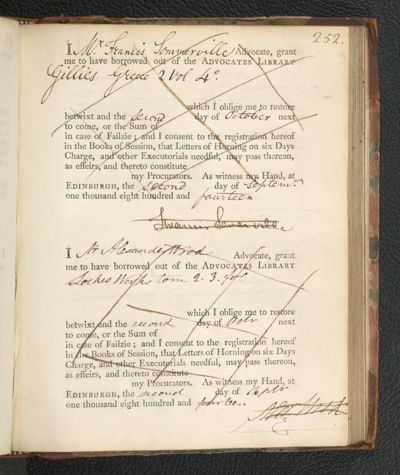 252.
I Mr Francis Sommerville Advocate, grant
me to have borrowed out of the ADVOCATES LIBRARY
Gillies Greece 2 Vol 4o.
which I oblige me to restore
betwixt and the second day of October next
to come, or the Sum of
in case of Failzie ; and I consent to the registration hereof
in the Books of Session, that Letters of Horning on six Days
Charge, and other Executorials needful, may pass thereon,
as effeirs, and thereto constitute
my Procurators. As witness my Hand, at
EDINBURGH, the second day of Septemr
one thousand eight hundred and fourteen
Francis Somerville
I Mr Alexander Wood Advocate, grant
me to have borrowed out of the ADVOCATES LIBRARY
Lockes Works tom 2. 3.
which I oblige me to restore
betwixt and the second day of Octr next
to come, or the Sum of
in case of Failzie ; and I consent to the registration hereof
in the Books of Session, that Letters of Horning on six Days
Charge, and other Executorials needful, may pass thereon,
as effeirs, and thereto constitute
my Procurators. As witness my Hand, at
EDINBURGH, the second day of Septr
one thousand eight hundred and fourteen
Wood